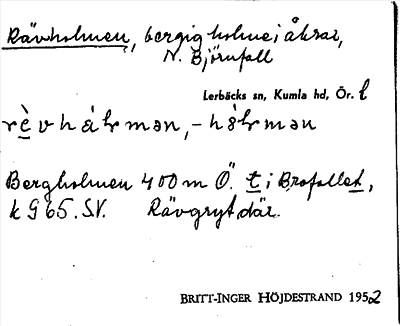 Rävholmen, bergig holme i åkrar,
N. Björnfall
Lerbäcks sn, Kumla hd, Ör. l
rèvhåłmən, -hòłmən
Bergholmen 400 m Ö. t i Brofallet,
k G 65. S.V. Rävgryt där.
BRITT-INGER HÖJDESTRAND 1952